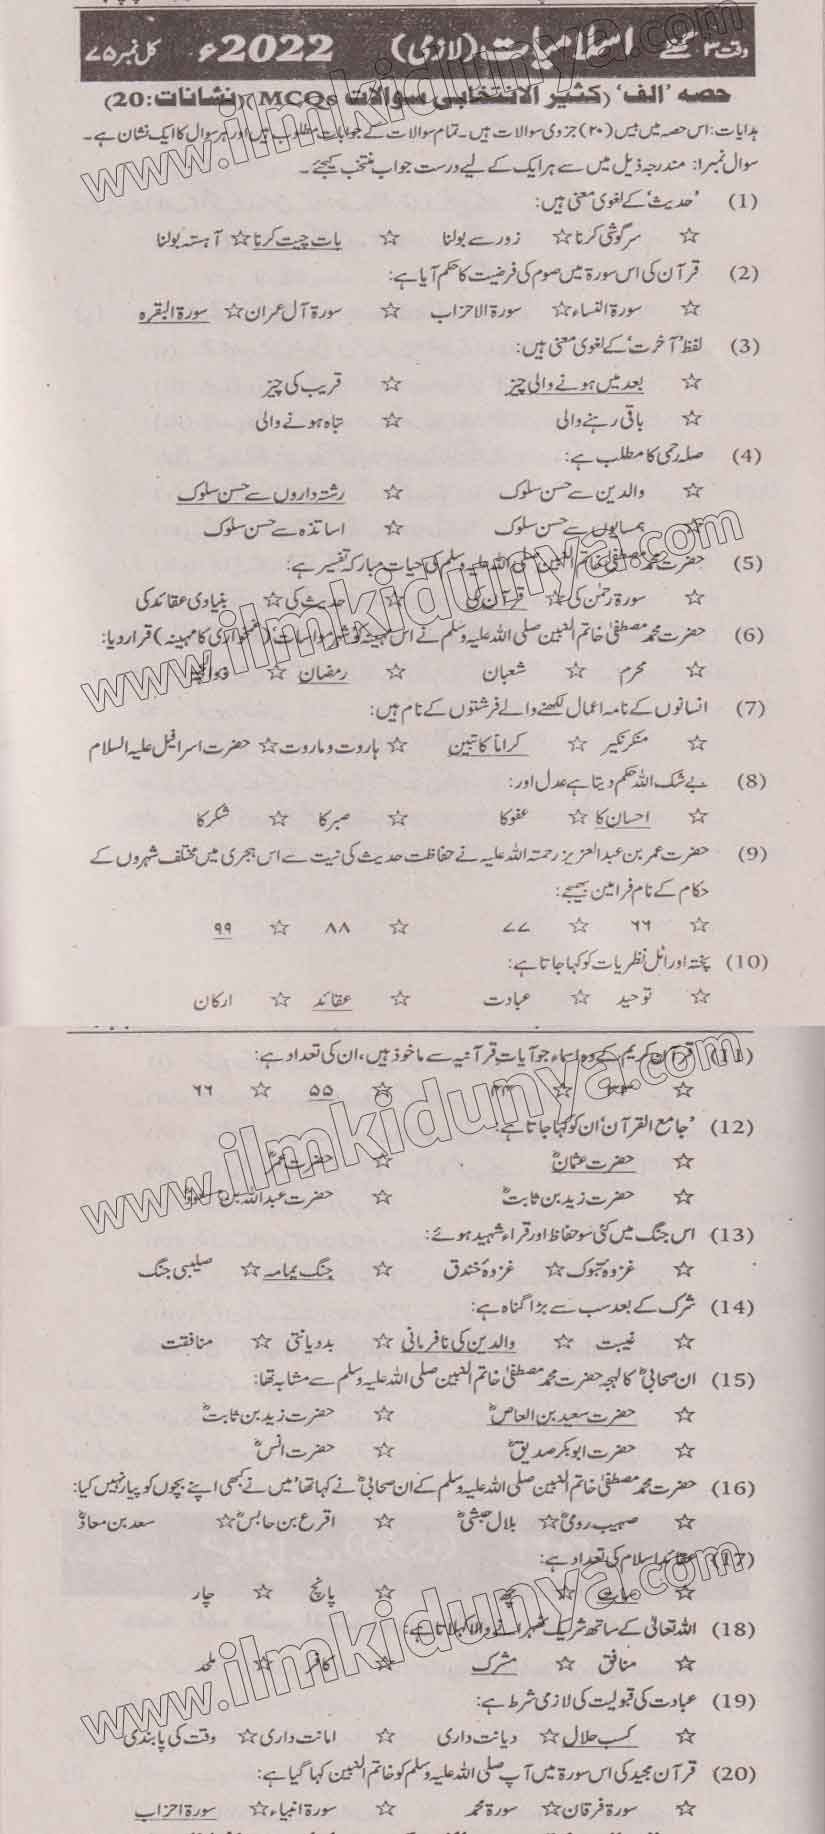 وقت ۳ گھنٹے اسلامیات (لازمی) 2022ء کل نمبر ۷۵
حصہ ’الف‘ (کثیر الانتخابی سوالات MCQs) (نشانات: 20)
ہدایات: اس حصہ میں بیس (۲۰) جزوی سوالات ہیں۔ تمام سوالات کے جوابات مطلوب ہیں اور ہر سوال کا ایک نشان ہے۔
سوال نمبر۱: مندرجہ ذیل میں سے ہر ایک کے لیے درست جواب منتخب کیجئے۔
(1) ’حدیث‘ کے لغوی معنی ہیں:
☆ سرگوشی کرنا ☆ زور سے بولنا ☆ بات چیت کرنا ☆ آہستہ بولنا
(2) قرآن کی اس سورۃ میں صوم کی فرضیت کا حکم آیا ہے:
☆ سورۃ النساء ☆ سورۃ الاحزاب ☆ سورۃ آل عمران ☆ سورۃ البقرہ
(3) لفظ ’آخرت‘ کے لغوی معنی ہیں:
☆ بعد میں ہونے والی چیز ☆ قریب کی چیز
☆ باقی رہنے والی ☆ تباہ ہونے والی
(4) صلہ رحمی کا مطلب ہے:
☆ والدین سے حسن سلوک ☆ رشتہ داروں سے حسن سلوک
☆ ہمسایوں سے حسن سلوک ☆ اساتذہ سے حسن سلوک
(5) حضرت محمد مصطفیٰ خاتم النبین صلی اللہ علیہ وسلم کی حیات مبارکہ تفسیر ہے:
☆ سورۃ رحمٰن کی ☆ قرآن کی ☆ حدیث کی ☆ بنیادی عقائد کی
(6) حضرت محمد مصطفیٰ خاتم النبین صلی اللہ علیہ وسلم نے اس مہینہ کو شہر مواسات (غمخواری کا مہینہ) قرار دیا:
☆ محرم ☆ شعبان ☆ رمضان ☆
(7) انسانوں کے نامہ اعمال لکھنے والے فرشتوں کے نام ہیں:
☆ منکر نکیر ☆ کراماً کاتبین ☆ ہاروت و ماروت ☆ حضرت اسرافیل علیہ السلام
(8) بے شک اللہ حکم دیتا ہے عدل اور:
☆ احسان کا ☆ عفو کا ☆ صبر کا ☆ شکر کا
(9) حضرت عمر بن عبدالعزیز رحمتہ اللہ علیہ نے حفاظت حدیث کی نیت سے اس ہجری میں مختلف شہروں کے
حکام کے نام فرامین بھیجے:
☆ ۶۶ ☆ ۷۷ ☆ ۸۸ ☆ ۹۹
(10) پختہ اور اٹل نظریات کو کہا جاتا ہے:
☆ توحید ☆ عبادت ☆ عقائد ☆ ارکان
(11) قرآن کریم کے وہ اسماء جو آیات قرآنیہ سے ماخوذ ہیں، ان کی تعداد ہے:
☆ ۳۳ ☆ ۴۴ ☆ ۵۵ ☆ ۶۶
(12) ’جامع القرآن‘ ان کو کہا جاتا ہے:
☆ حضرت عثمانؓ ☆ حضرت عمرؓ
☆ حضرت زید بن ثابتؓ ☆ حضرت عبداللہ بن
(13) اس جنگ میں کئی سو حفاظ اور قراء شہید ہوئے:
☆ غزوۂ تبوک ☆ غزوۂ خندق ☆ جنگ یمامہ ☆ صلیبی جنگ
(14) شرک کے بعد سب سے بڑا گناہ ہے:
☆ غیبت ☆ والدین کی نافرمانی ☆ بددیانتی ☆ منافقت
(15) ان صحابیؓ کا لہجہ حضرت محمد مصطفیٰ خاتم النبین صلی اللہ علیہ وسلم سے مشابہ تھا:
☆ حضرت سعید بن العاصؓ ☆ حضرت زید بن ثابتؓ
☆ حضرت ابوبکر صدیقؓ ☆ حضرت انسؓ
(16) حضرت محمد مصطفیٰ خاتم النبین صلی اللہ علیہ وسلم کے ان صحابیؓ نے کہا تھا ’میں نے کبھی اپنے بچوں کو پیار نہیں کیا:
☆ صہیب رومیؓ ☆ بلال حبشیؓ ☆ اقرع بن حابسؓ ☆ سعد بن معاذؓ
(17) عقائد اسلام کی تعداد ہے:
☆ سات ☆ چھ ☆ پانچ ☆ چار
(18) اللہ تعالیٰ کے ساتھ شریک ٹھہرانے والا کہلاتا ہے:
☆ منافق ☆ مشرک ☆ کافر ☆ ملحد
(19) عبادت کی قبولیت کی لازمی شرط ہے:
☆ کسب حلال ☆ دیانت داری ☆ امانت داری ☆ وقت کی پابندی
(20) قرآن مجید کی اس سورۃ میں آپ صلی اللہ علیہ وسلم کو خاتم النبین کہا گیا ہے:
☆ سورۃ فرقان ☆ سورۃ محمد ☆ سورۃ انبیاء ☆ سورۃ احزاب
www.ilmkidunya.com
www.ilmkidunya.com
www.ilmkidunya.com
www.ilmkidunya.com